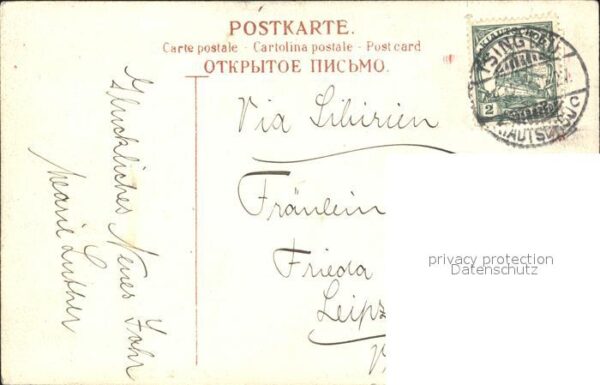 POSTKARTE.
Carte postale - Cartolina postale - Post card
ОТКРЫТОЕ ПИСЬМО.
KIAUTSCHOU
2
TSINGTAU
KIAUTSCHOU
Via Sibirien
Fräulein
Frieda
Leipz
Glückliches Neues Jahr
Marie Luther
privacy protection
Datenschutz